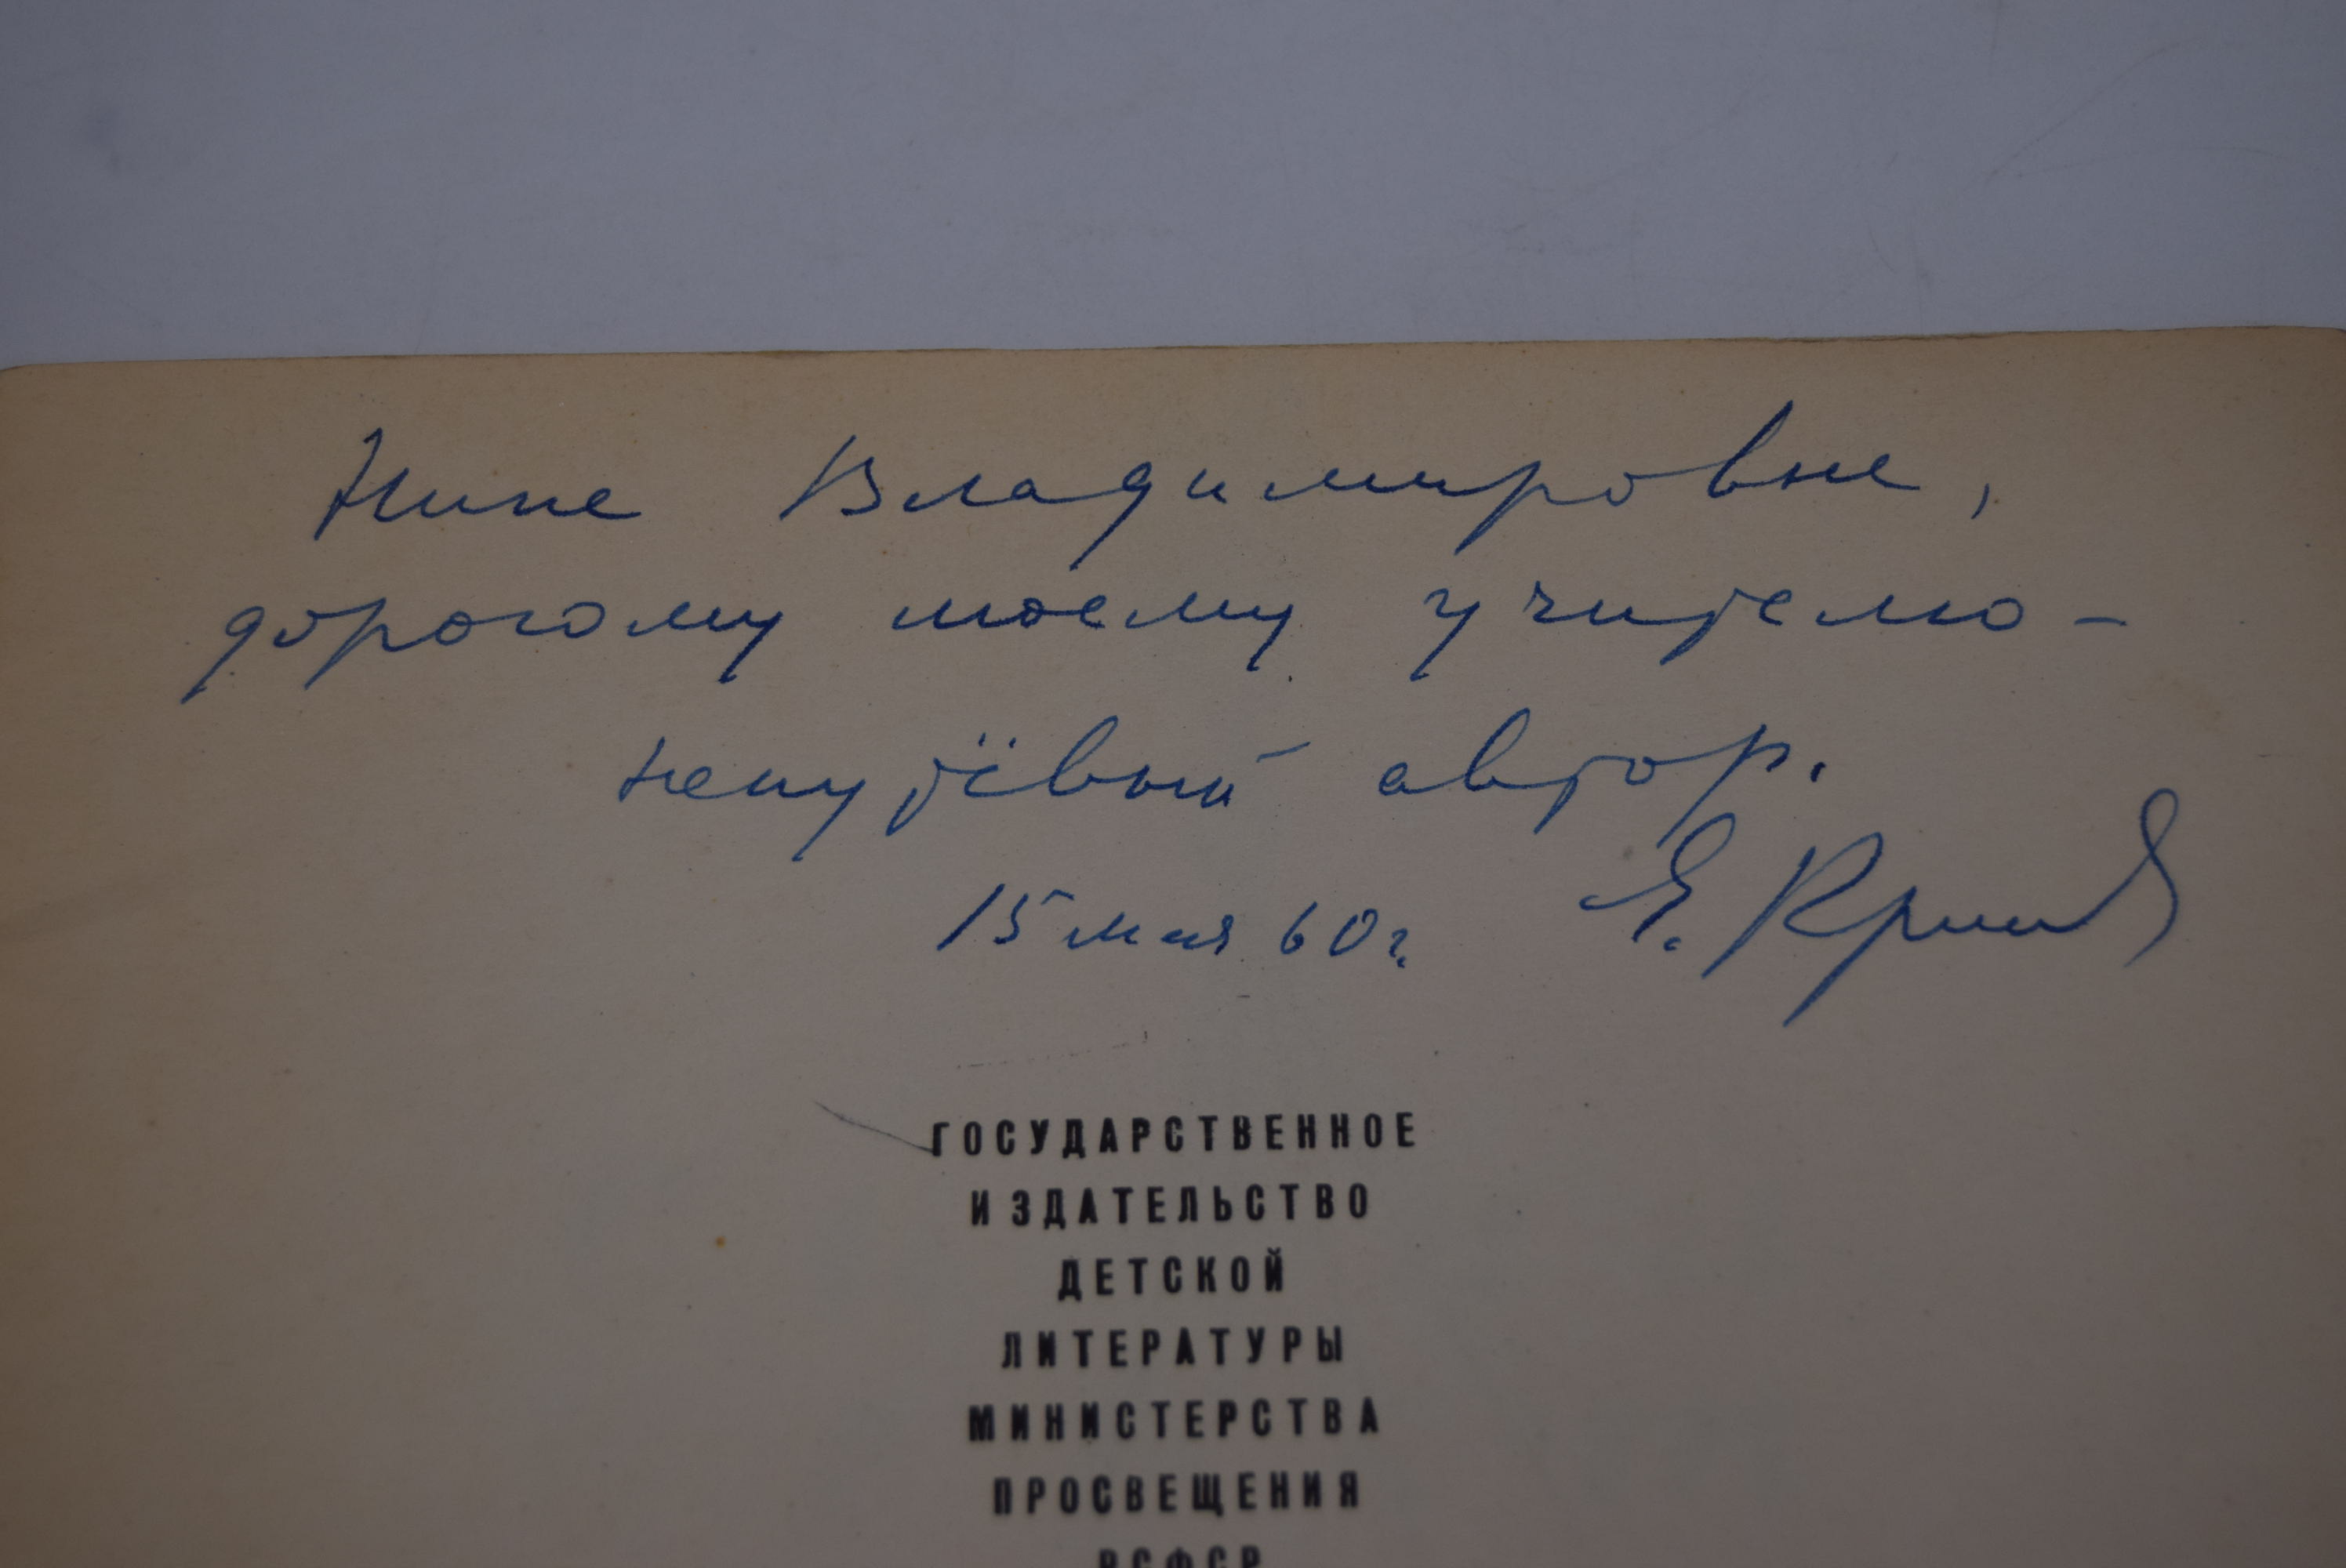 Нине Владимировне,
дорогому моему учителю -
непутёвый автор.
15 мая 60 г. Я.
ГОСУДАРСТВЕННОЕ
ИЗДАТЕЛЬСТВО
ДЕТСКОЙ
ЛИТЕРАТУРЫ
МИНИСТЕРСТВА
ПРОСВЕЩЕНИЯ
РСФСР